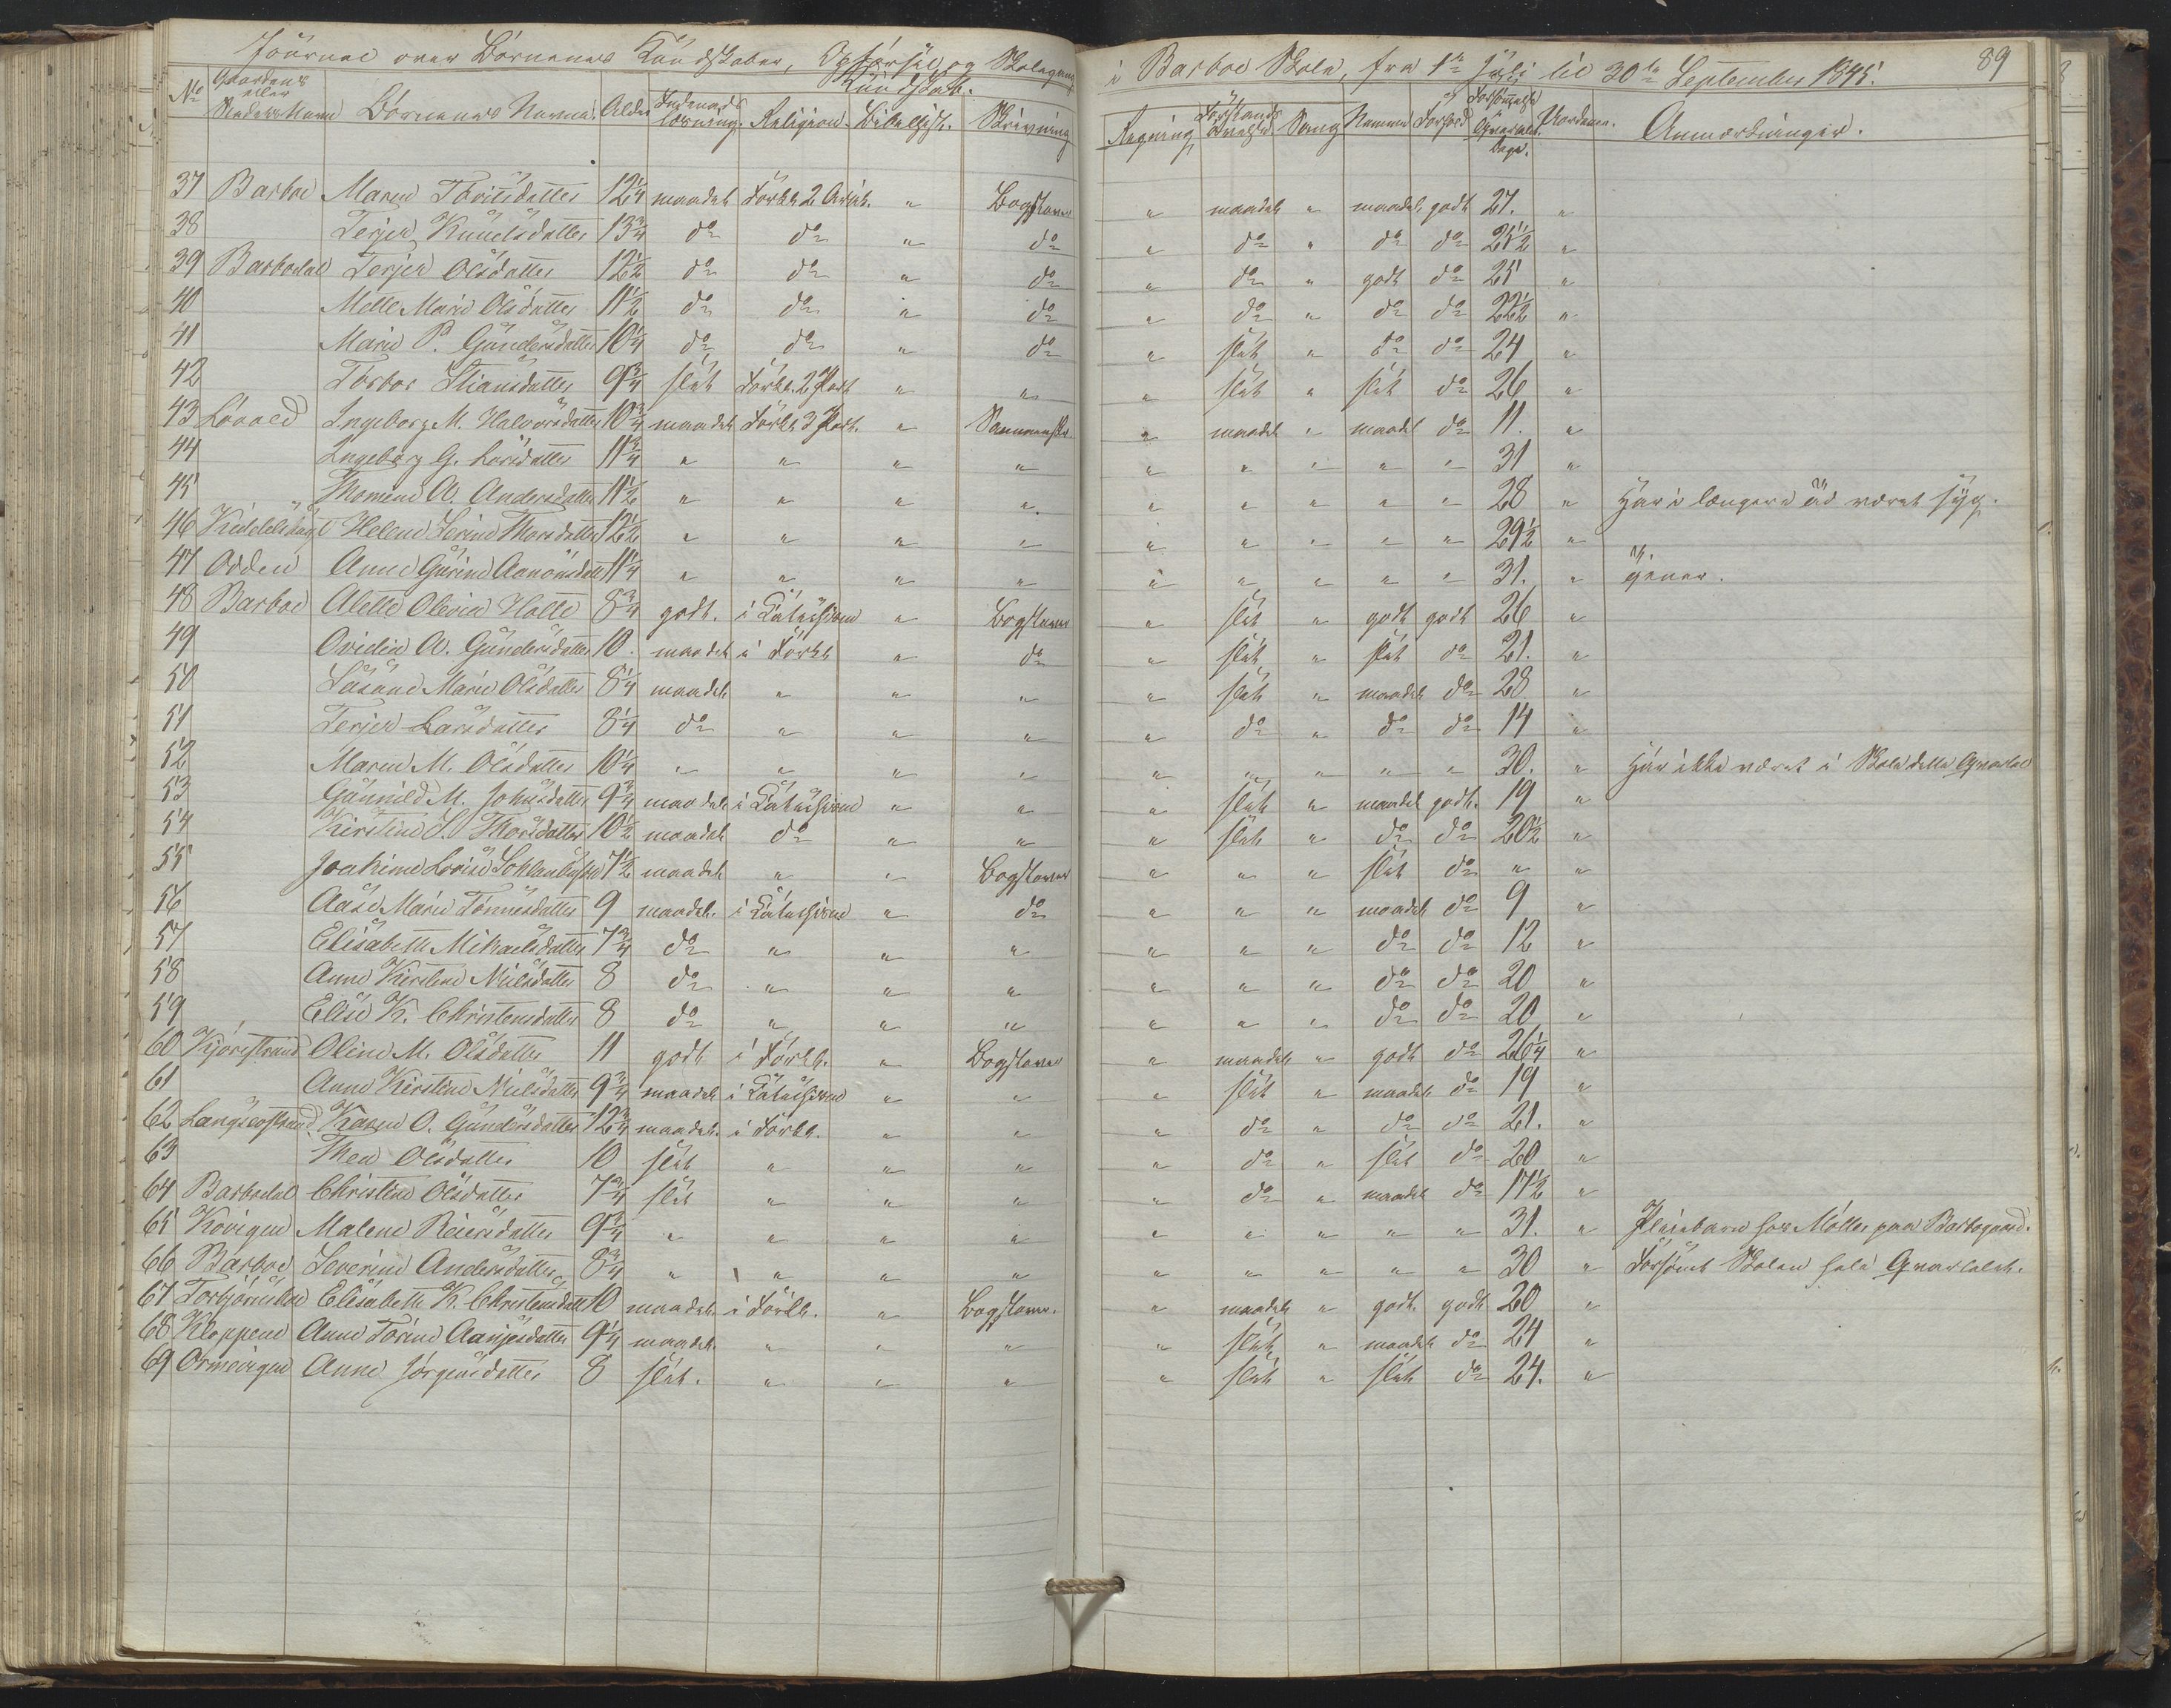 Journal over Børnenes Kundskaber, Opførsel og Skolegang i Barboe Skole, fra 1ste Juli til 30te September 1845. 89
No Gaardens eller Stedets Navn Børnenes Navne. Alder Kundskab. Indenads læsning. Religion. Bibelhist. Skrivning Regning Forstands Øvelse Sang Nemme Forhold Forsømmelse Qvartalet. Dage. Anmærkninger.
37 Barboe Maren Torisdatter 12 1/4 maadel. Forkl. 2 Artik. " Bogstaver " maadel. " maadel. godt 27. "
38 Terjer Knudsdatter 13 3/4 do do " do " do " do do 25 1/2 "
39 Barbodal Terjer Olsdatter 12 1/2 do do " do " do " godt do 25 "
40 Mette Marie Olsdatter 11 1/2 do do " do " do " do do 22 1/2 "
41 Marie P. Gundersdatter 10 1/4 do do " do " slet " do do 24 "
42 Torbor Stiansdatter 9 3/4 slet Forkl. 2 Part " " " slet " slet do 26 "
43 Løvold Ingeborg M. Halvorsdatter 10 3/4 maadel. Forkl. 3 Part. " Sammenskr. " maadel " maadel do 11. "
44 Ingeborg G. Larsdatter 11 3/4 " " " " " " " " " 31 "
45 Thomine A. Andersdatter 11 1/2 " " " " " " " " " 28 " Har i længere Tid været syg.
46 Helene Serine Thorsdatter 12 1/2 " " " " " " " " " 29 1/2 "
47 Odden Anne Gurine Aanonsdatter 11 1/4 " " " " " " " " " 31. "
48 Barboe Alette Olevia Holte 8 3/4 godt. i Katechismen " Bogstaver " slet " godt godt 26 "
49 Ovidia A. Gundersdatter 10. maadel i Forkl. " do " slet " slet do 21. "
50 Susane Marie Olsdatter 8 1/4 maadel. " " " " slet " maadel do 28 "
51 Terjer Larsdatter 8 1/4 do " " " " do " do do 14 "
52 Maren M. Olsdatter 10 1/4 " " " " " " " " " 30. " Har ikke været i Skole dette Qvartal
53 Gunnild M. Johnsdatter 9 3/4 maadel. i Katechismen " " " slet " maadel godt. 19 "
54 Kirstine S. Thorsdatter 10 1/2 maadel do " " " slet " do do 20 1/2 "
55 Joakime Lovise 7 1/2 maadel " " Bogstaver " " " slet do " "
56 Aase Marie Tønnesdatter 9 maadel. i Katechismen " do " " " maadel do 9 "
57 Elisabeth Mikaelsdatter 7 3/4 do " " " " " " do do 12 "
58 Anne Kirstine Nielsdatter 8 do " " " " " " do do 20 "
59 Elise K. Christensdatter 8 do " " " " " " do do 20 "
60 Kjørrestrand Oline M. Olsdatter 11 godt i Forkl. " Bogstaver " maadel. " godt do 26 1/4 "
61 Anne Kirstine Nielsdatter 9 3/4 maadel. i Katechismen " " " slet " maadel. do 19 "
62 Langsevstrand Karen O. Gundersdatter 12 3/4 maadel. i Forkl. " " " do " do do 21. "
63 Thea Olsdatter 10 slet " " " " do " slet do 20 "
64 Barbodal Christine Olsdatter 7 3/4 slet " " " " do " maadel do 17 1/2 "
65 Kovigen Malene Reiersdatter 9 3/4 " " " " " " " " " 31. " Pleiebarn hos Møller paa Barbogaard.
66 Barboe Severine Andersdatter 8 3/4 " " " " " " " " " 30 " Forsømt Skolen hele Qvartalet.
67 Torbjørnsbu Elisabeth K. Christensdatter 10 maadel. i Forkl. " Bogstaver. " maadel. " godt. godt 20 "
68 Kloppene Anne Torine Aanjesdatter 9 1/4 maadel. " " " " slet " maadel. do 24 "
69 Ormevigen Anne Jørgensdatter 8 slet. " " " " slet " slet do 24. "